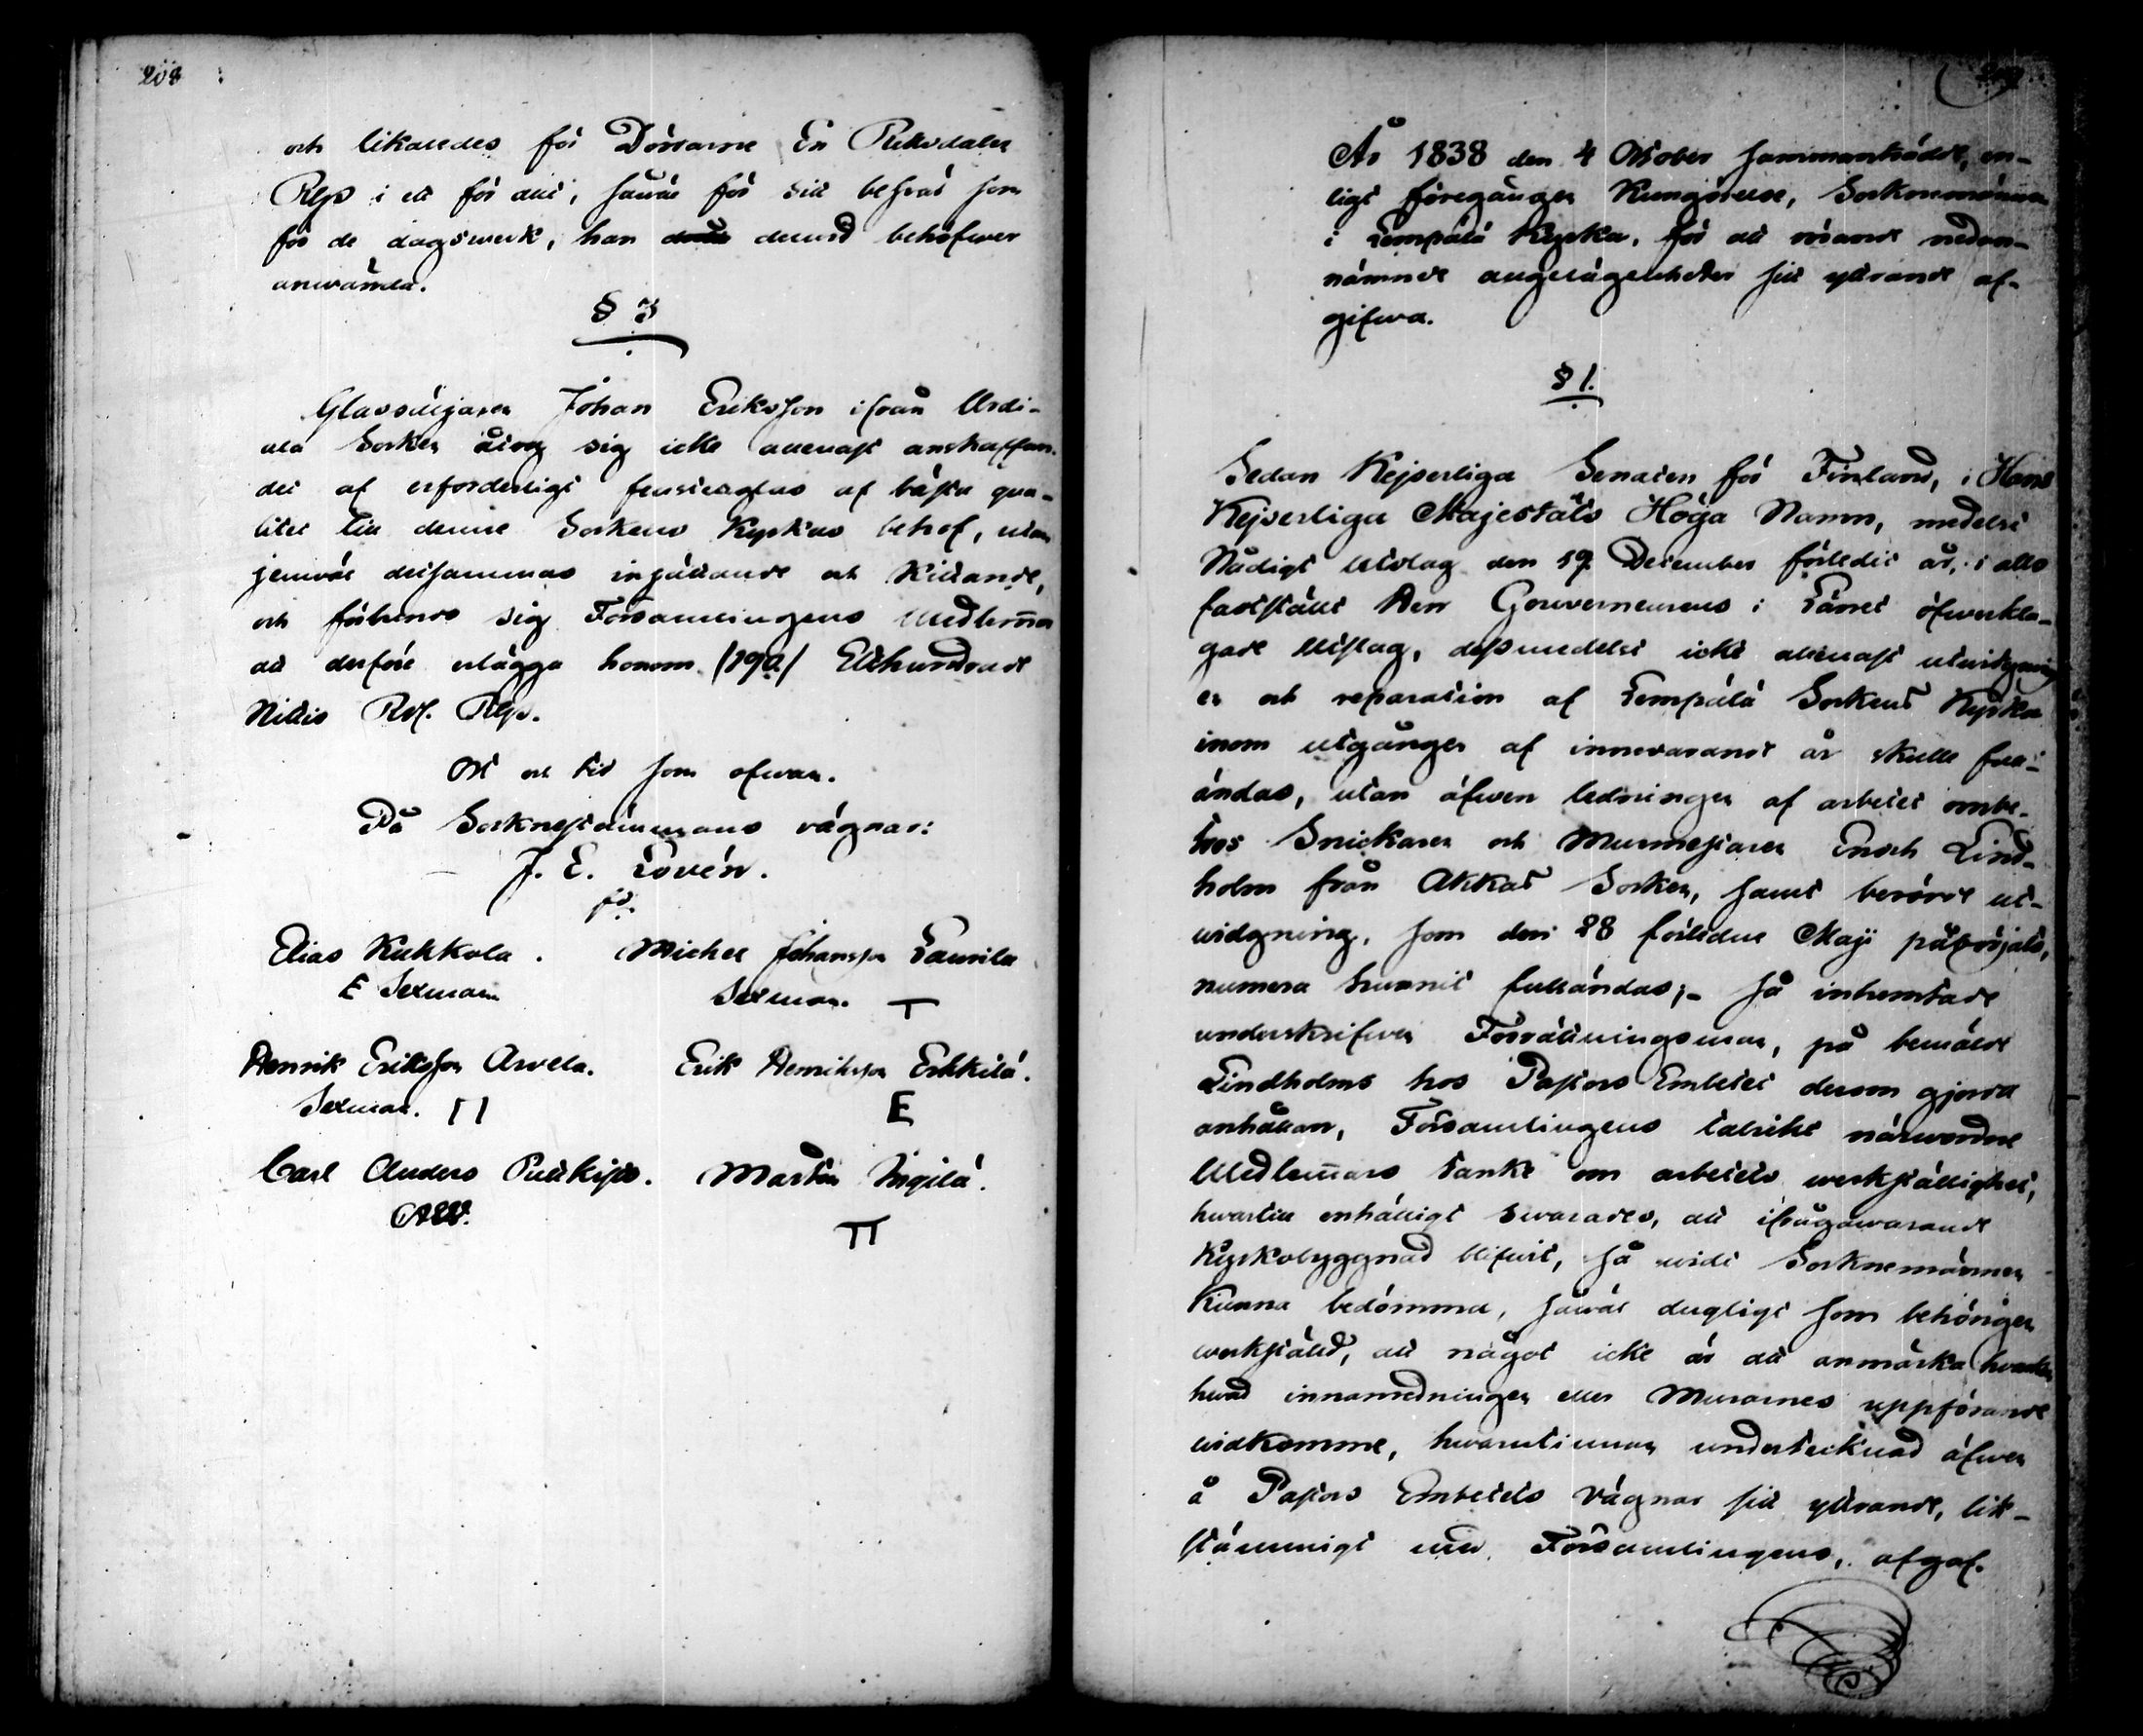 208
och likaledes för Dörrarne En Riksdaler
Rgs i ett för allt, såwäl för sitt besvär som
för de dagswerk, han derwid behöfwer
använda.
§ 3
Glassättjaren Johan Eriksson ifrån Urdi-
ala Socken åtog sig icke allenast anskaffan-
det af erforderligt fensterglas af bästa qua-
litet till denne Sockens Kyrkas behof, utan
jemväl detsammas insättande och Kittande,
och förbands sig Församlingens Medlemar
att derföre erlägga honom /190/ Etthundrade
Nittio Rd. Rgs.
Ort och tid som ofwan.
På Socknestämmans vägnar:
J. E. Lovén.
Elias Kukkola. Michel Johansson Laurila
E Sexman Sexman.
Henrik Eriksson Arvela. Erik Henriksson Erkkilä.
Sexman. E
Carl Anders Pulkkis. Martin Sigilä.
År 1838 den 4 October sammanträdde, en-
ligt föregången Kungörelse, Socknemännen
i Lempälä Kyrka, för att rörande nedan-
nämnde angelägenheter sitt yttrande af-
gifwa.
§ 1.
Sedan Kejserliga Senaten för Finland, i Hans
Kejserliga Majestäts Höga Namn, medelst
Nådigt Utslag den 19 December förledit år, i allo
fastställt Herr Gouverneurens i Länet öfwerkla-
gade Utslag, dessmedelst icke allenast utvidgning
en och reparation af Lempälä Sockens Kyrka
inom utgången af innevarande år skulle full-
ändas, utan äfwen ledningen af arbetet ombe-
tros Snickaren och Murmestaren Enoch Lind-
holm från Akkas Socken, samt berörde ut-
widgning, som den 28 förledne Maji påbörjats,
numera hunnit fulländas; - Så inhemtade
underskrifwen Förrättningsman, på bemälde
Lindholms hos Pastors Embetet derom gjorda
anhållan, Församlingens talrikt närwarande
Medlemars tanke om arbetets werkställighet,
hwartill enhälligt swarades, att ifrågawarande
Kyrkobyggnad blifwit, så widt Socknemännen
Kunna bedömma, såwäl dugligt som behörigen
werkställd, att något icke är att anmärka hwarken
hwad innanredningen eller Murarnes uppförande
widkomme, hwarutinnan undertecknad äfwen
å Pastors Embetets Vägnar sitt yttrande, lik-
stämmigt med Församlingens, afgaf.